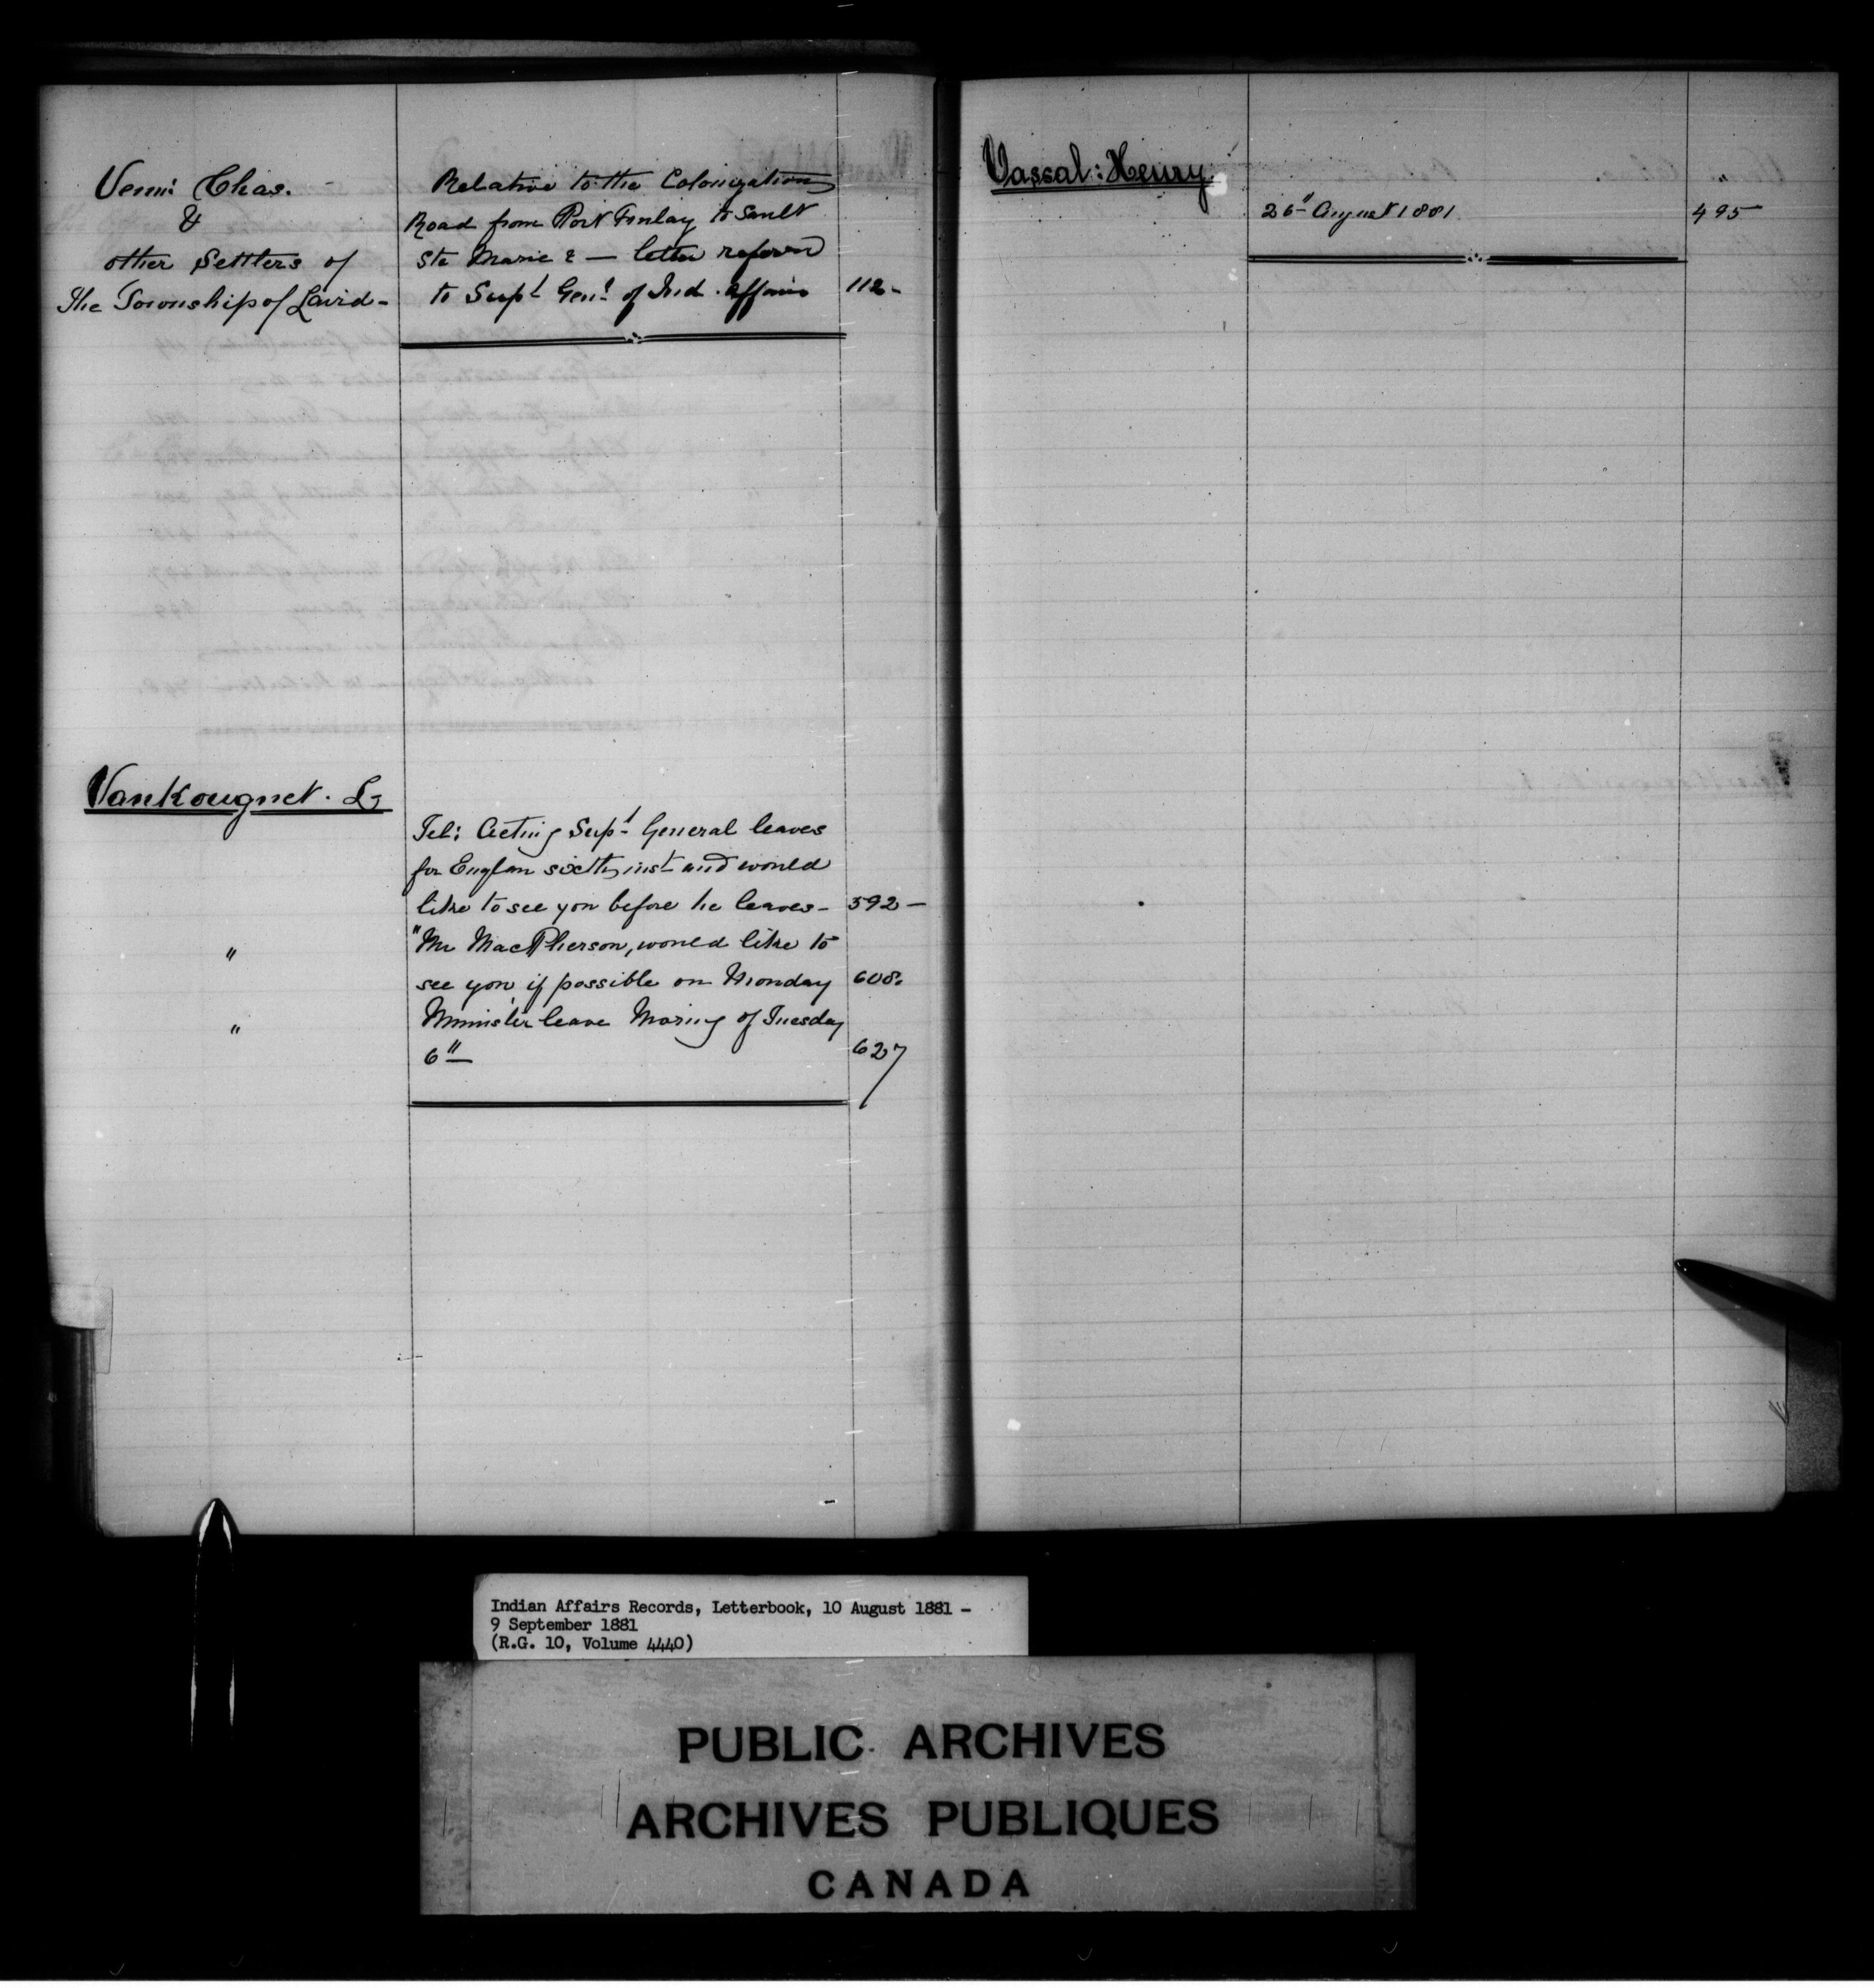 Venn: Chas.
&
other Settlers of
The Township of Laird -
Relative to the Colonization
Road from Port Finlay to Sault
Ste Marie & — letter referred
to Supt Genl of Ind. Affairs 112 -
VanKougnet. L.
Tel: Acting Supt General leaves
for Englan sixth inst and would
like to see you before he leaves - 592 -
" "Mr MacPherson, would like to
see you if possible on Monday 608.
" Minister leave Moring of Tuesday
6" 627
Vassal: Henry.
26" August 1881 495
Indian Affairs Records, Letterbook, 10 August 1881 -
9 September 1881
(R.G. 10, Volume 4440)
PUBLIC ARCHIVES
ARCHIVES PUBLIQUES
CANADA